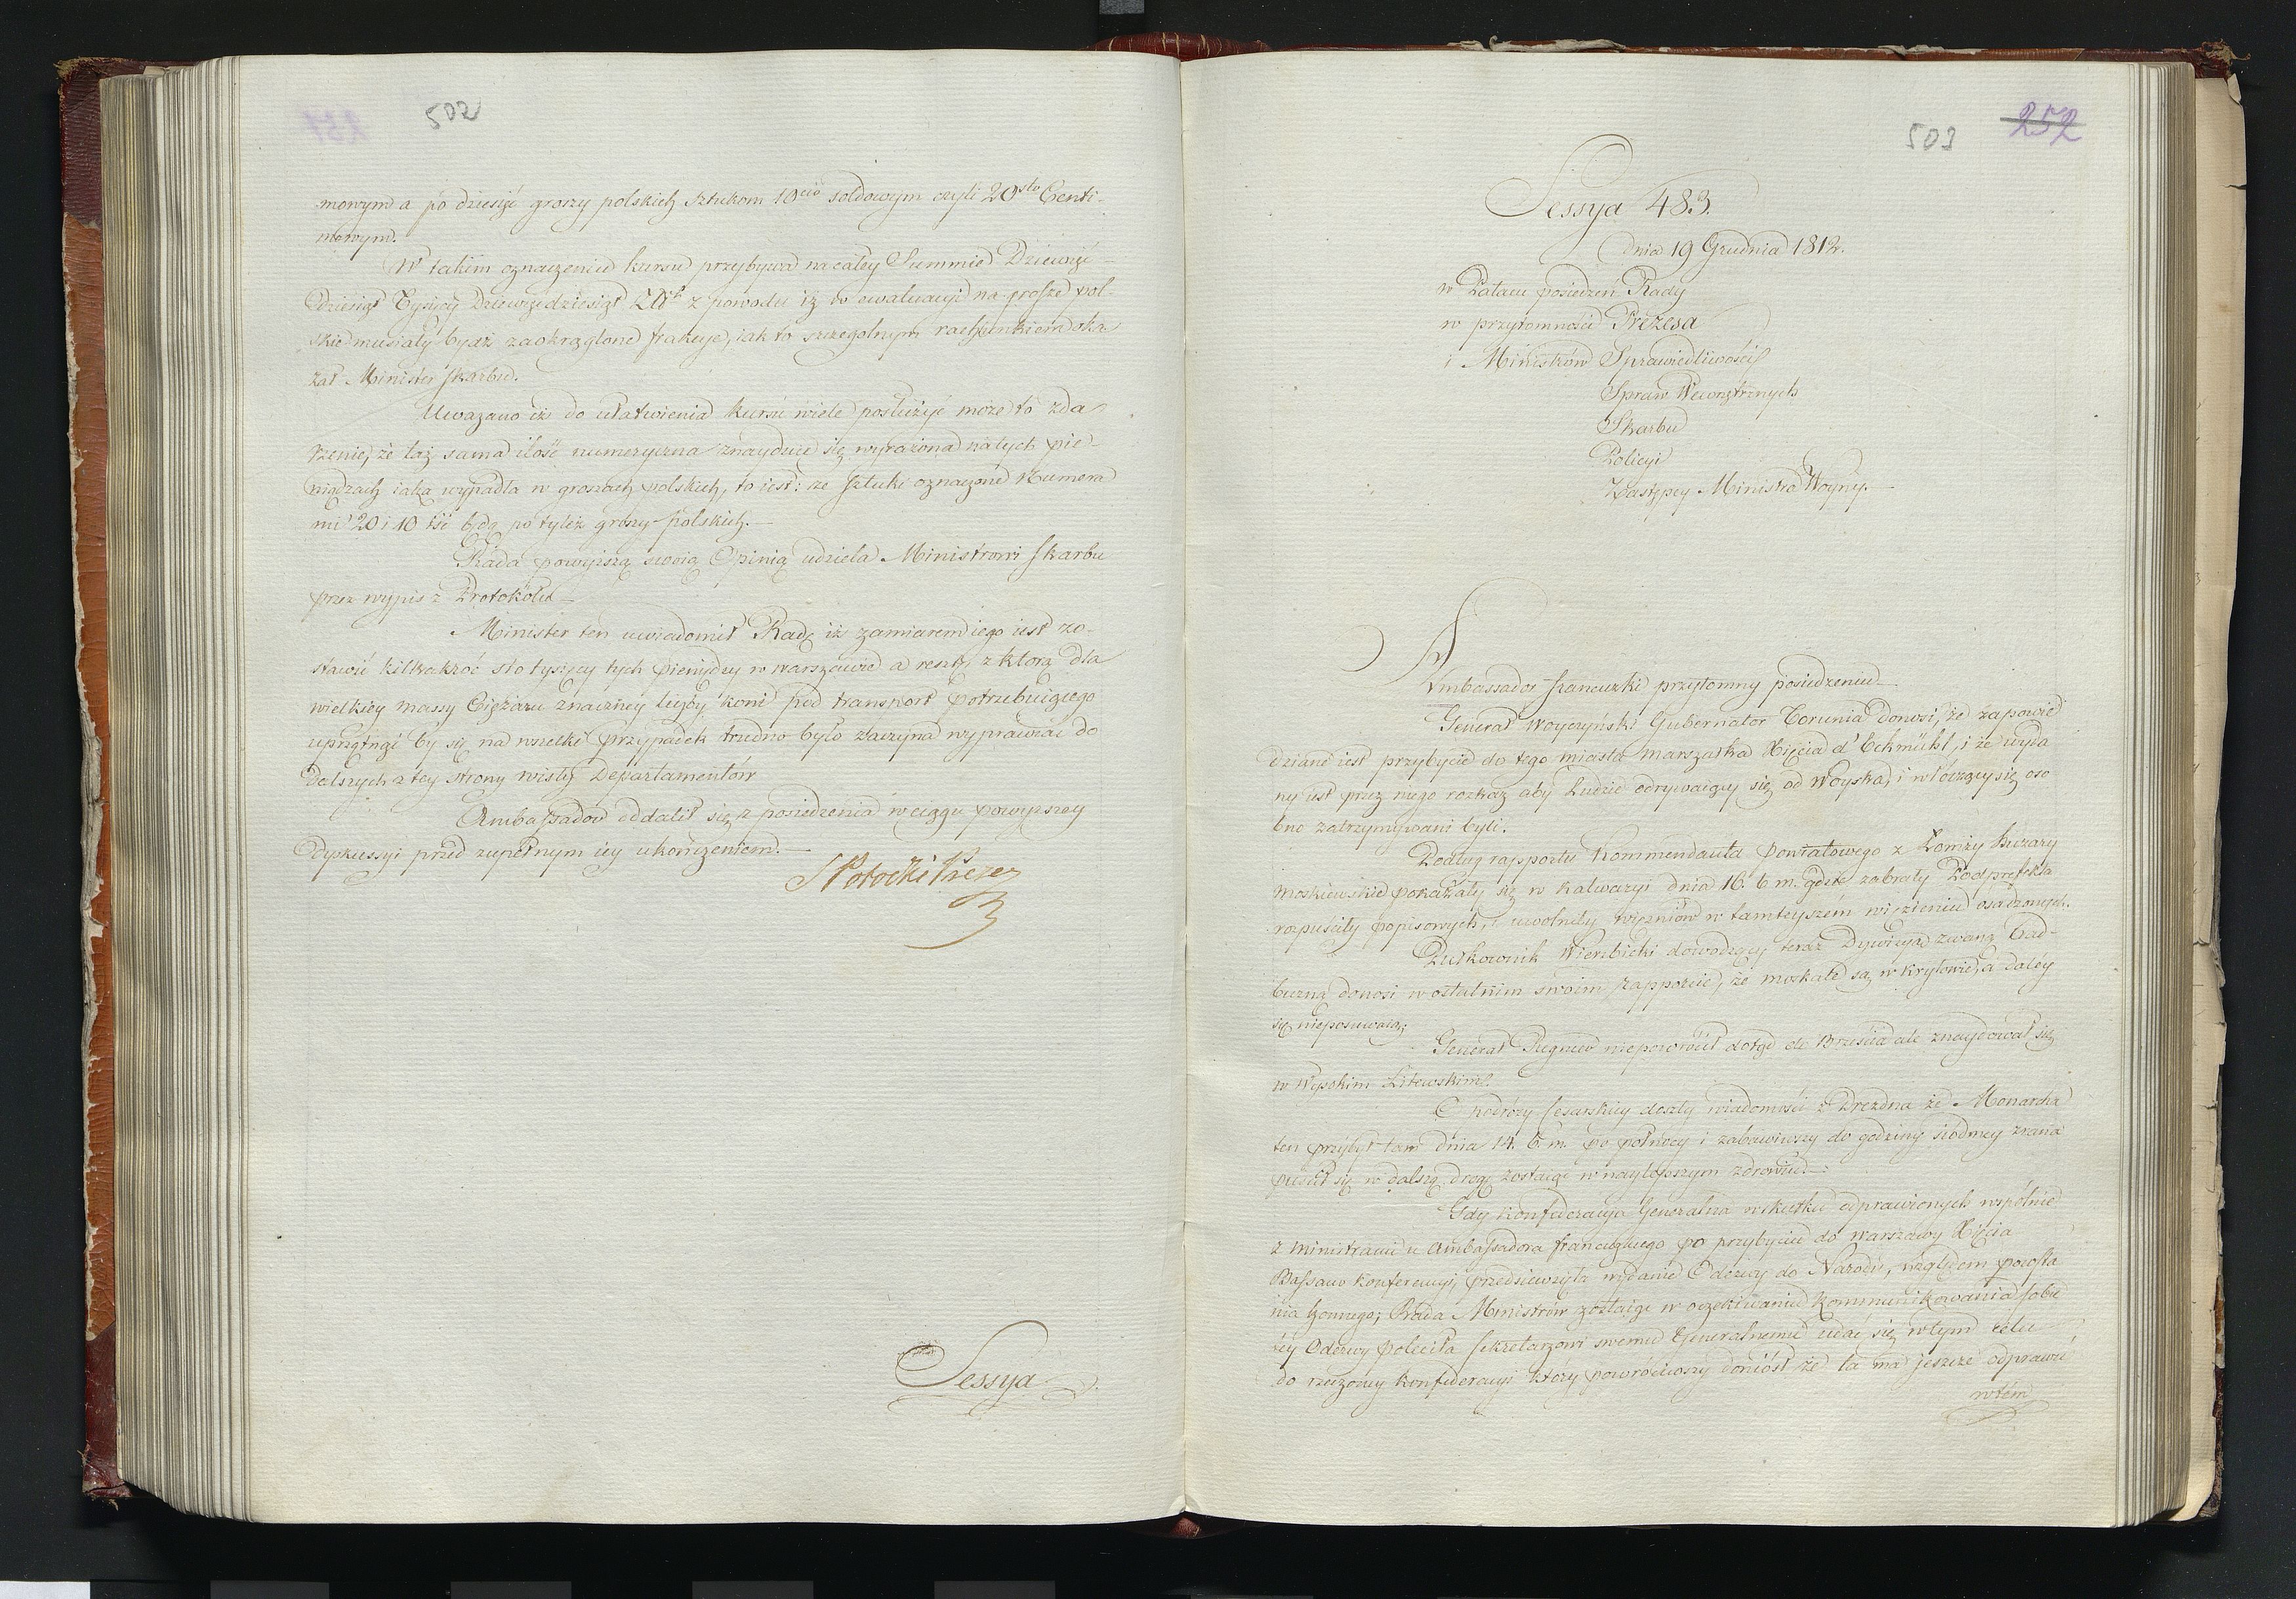 502
mowym a po dziesięć groszy polskich sztukom 10cio soldowym czyli 20sto Centi-
mowym.
W takim oznaczeniu kursu przybywa na całey Summie Dziewięć-
dziesiąt Tysięcy Dziewięćdziesiąt Złłch z powodu iż w ewaluacyi na grosze pol
skie musiały bydź zaokrąglone frakcye, iak to szczegolnym rachunkiem oka
zał Minister Skarbu.
Uważano iż do ułatwienia kursu wiele posłużyć może to zda
rzenie, że taż sama ilość numeryczna znayduie się wyrażona na tych pie-
niądzach iaka wypadła w groszach polskich, to iest: że sztuki oznaczone Numera
mi 20 i 10 iść będą po tyleż groszy polskich.
Rada powyższą swoią Opinią udziela Ministrowi Skarbu
przez wypis z Protokołu
Minister ten uwiadomił Radę iż zamiarem iego iest zo-
stawić kilkakroć sto tysięcy tych pieniędzy w Warszawie a resztę z którą dla
wielkiey massy Ciężaru znaczney liczby koni pod transport potrzebuiącego
uprzątnąć by się na wszelki przypadek trudno było zaczyna wyprawiać do
dalszych z tey strony wisły Departamentów
Ambassador oddalił się z posiedzenia w ciągu powyższey
dyskussyi przed zupełnym iey ukończeniem.
S Potocki Prezes
Sessya
252
503
Sessya 483.
dnia 19 Grudnia 1812.
w Pałacu posiedzeń Rady
w przytomności Prezesa
i Ministrów Sprawiedliwości
Spraw Wewnętrznych
Skarbu
Policyi
Zastępcy Ministra Woyny.
Ambassador francuzki przytomny posiedzeniu
Generał Woyczyński Gubernator Torunia donosi, że zapowie
dziane iest przybycie do tego miasta Marszałka Xięcia d'Eckmühl, i że wyda
ny iest przez niego rozkaz aby Ludzie odrywaiący się od Woyska, i włóczący się oso
bno zatrzymywani byli.
Podług rapportu Kommendanta Powiatowego z Łomży huzary
moskiewskie pokazały się w Kalwaryi dnia 16. b. m. gdzie zabrały Podprefekta
rozpuściły popisowych, i uwolniły więźniów w tamteyszém więzieniu osadzonych.
Pułkownik Wierzbicki dowodzący teraz Dywizyą zwaną Nad-
bużną donosi w ostatnim swoim rapporcie, że moskale są w Kryłowie, a daley
się nieposuwaią;
Generał Regnier niepowrócił dotąd do Brześcia ale znaydował się
w Wysokim Litewskim.
O podróży Cesarskiey doszły wiadomości z Drezdna że Monarcha
ten przybył tam dnia 14. b. m. po północy i zabawiwszy do godziny siódmey zrana
puścił się w dalszą drogę zostaiąc w naylepszym zdrowiu.
Gdy Konfederacya Generalna w skutku odprawionych wspólnie
z Ministrami u Ambassadora francuzkiego po przybyciu do Warszawy Xięcia
Bassano konferencyi, przedsięwzięła wydanie Odezwy do Narodu, względem powsta
nia konnego; Rada Ministrów zostaiąc w oczekiwaniu kommunikowania sobie
téy Odezwy poleciła Sekretarzowi swemu Generalnemu udać się w tym celu
do rzeczoney Konfederacyi który powróciwszy doniósł że ta ma jeszcze odprawić
w tém